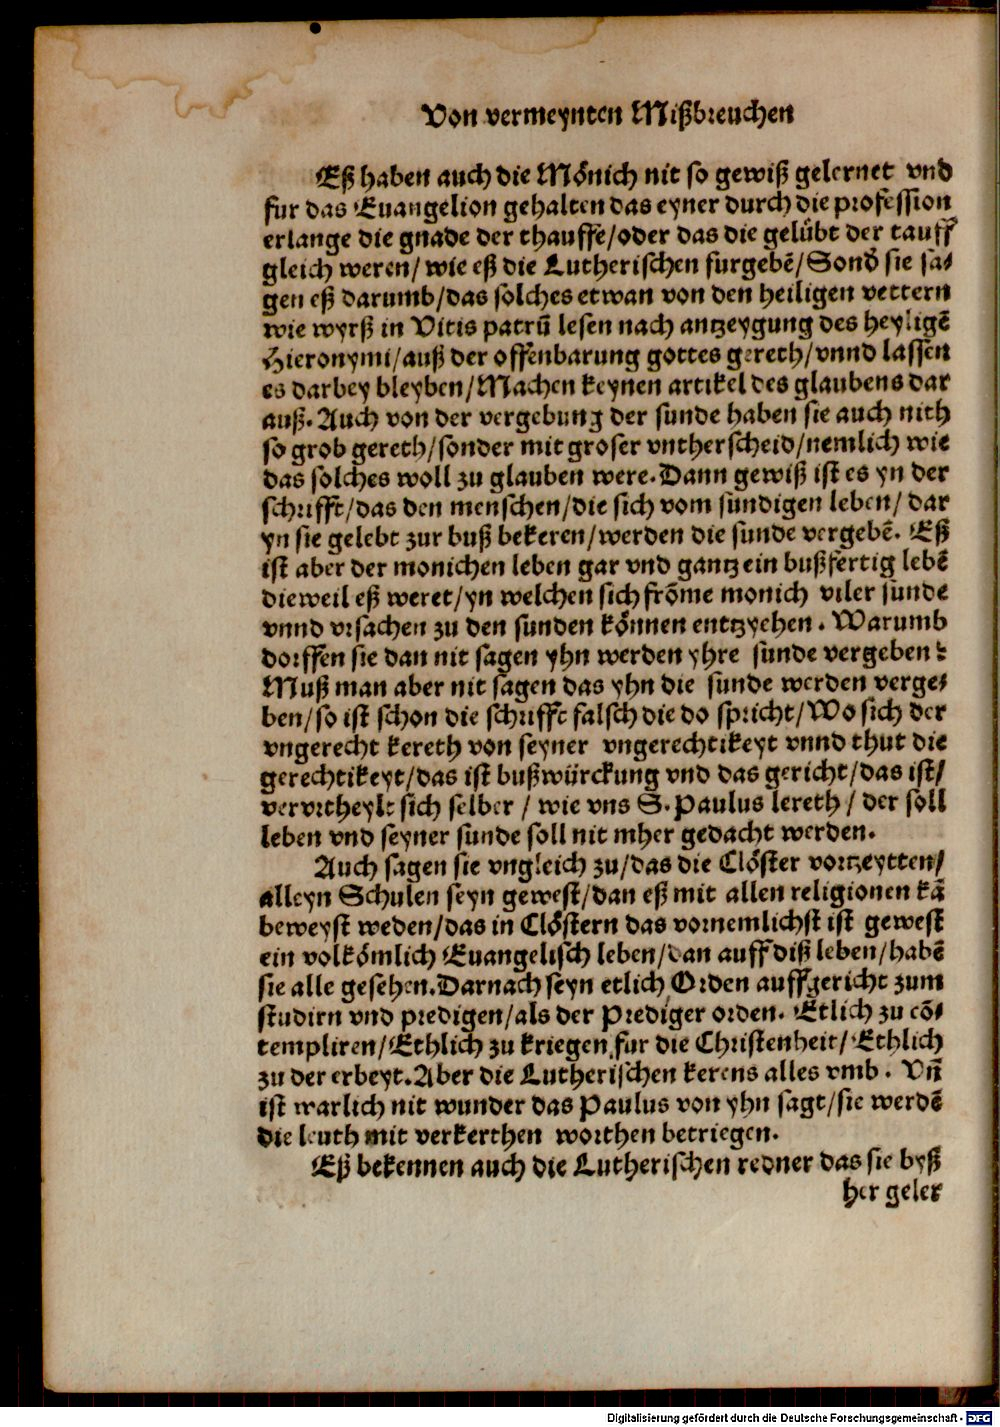 Von vermeynten Mißbreuchen
Eß haben auch die Mönich nit so gewiß gelernet vnd
fur das Euangelion gehalten das eyner durch die profession
erlange die gnade der thauffe/oder das die gelübt der tauff
gleich weren/ wie eß die Lutherischen furgebē/Sond̉ sie sa⸗
gen eß darumb/das solches etwan von den heiligen vettern
wie wyrß in Vitis patrū lesen nach antzeygung des heyligē
Hieronymi/auß der offenbarung gottes gereth/vnnd lassen
es darbey bleyben/Machen keynen artikel des glaubens dar
auß. Auch von der vergebung der sunde haben sie auch nith
so grob gereth/sonder mit groser vntherscheid/nemlich wie
das solches woll zu glauben were. Dann gewiß ist es yn der
schrifft/das den menschen/die sich vom sundigen leben/ dar
yn sie gelebt zur buß bekeren/werden die sunde vergebē. Eß
ist aber der monichen leben gar vnd gantz ein bußfertig lebē
dieweil eß weret/yn welchen sich frōme monich viler sunde
vnnd vrsachen zu den sunden können entzyehen. Warumb
dorffen sie dan nit sagen yhn werden yhre sunde vergeben?
Muß man aber nit sagen das yhn die sunde werden verge⸗
ben/so ist schon die schrifft falsch die do spricht/Wo sich der
vngerecht kereth von seyner vngerechtikeyt vnnd thut die
gerechtikeyt/das ist bußwürckung vnd das gericht/das ist/
vervrtheylt sich selber / wie vns S. Paulus lereth / der soll
leben vnd seyner sunde soll nit mher gedacht werden.
Auch sagen sie vngleich zu/das die Clöster vortzeytten/
alleyn Schulen seyn gewest/dan eß mit allen religionen kā
beweyst weden/das in Clöstern das vornemlichst ist gewest
ein volkömlich Euangelisch leben/dan auff diß leben/habē
sie alle gesehen. Darnach seyn etlich Orden auffgericht zum
studirn vnd predigen/als der Prediger orden. Etlich zu cō⸗
templiren/Ethlich zu kriegen fur die Christenheit/Ethlich
zu der erbeyt. Aber die Lutherischen kerens alles vmb. Vn̄
ist warlich nit wunder das Paulus von yhn sagt/sie werdē
die leuth mit verkerthen worthen betriegen.
Eß bekennen auch die Lutherischen redner das sie byß
her geler
Digitalisierung gefördert durch die Deutsche Forschungsgemeinschaft - DFG